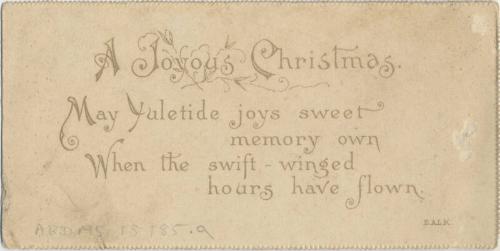 A Joyous Christmas.
May Yuletide joys sweet
memory own
When the swift-winged
hours have flown.